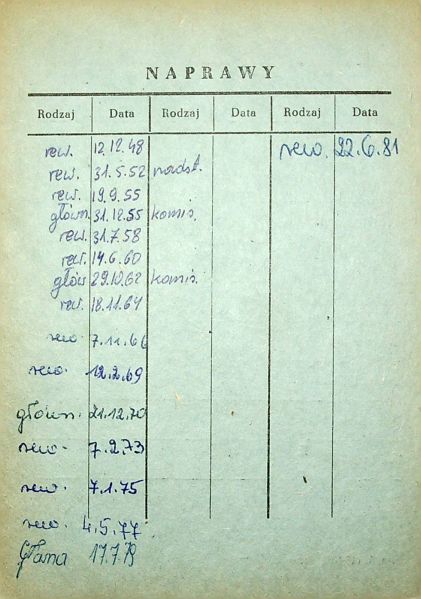 NAPRAWY
Rodzaj Data Rodzaj Data Rodzaj Data
rew. 12.12.48 rew. 22.6.81
rew. 31.5.52 nadst.
rew. 19.9.55
główn 31.12.55 komis.
rew. 31.7.58
rew. 14.6.60
głów 29.10.62 komis.
rew. 18.11.64
rew. 7.11.66
rew. 12.2.69
główn. 21.12.70
rew. 7.2.73
rew. 7.1.75
rew. 4.5.77
Głana 17.7.79